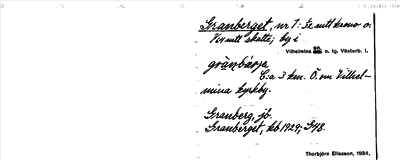 Granberget, nr 1: Fr mitt krono o.
Vit mitt skatte; by i
Vilhelmina o. tg. Västerb. l.
grànbärja
C:a 3 km. Ö. om Vilhel-
mina kyrkby.
Granberg, jb.
Granberget, kb 1929; G48.
Thorbjörn Eliasson, 1934.